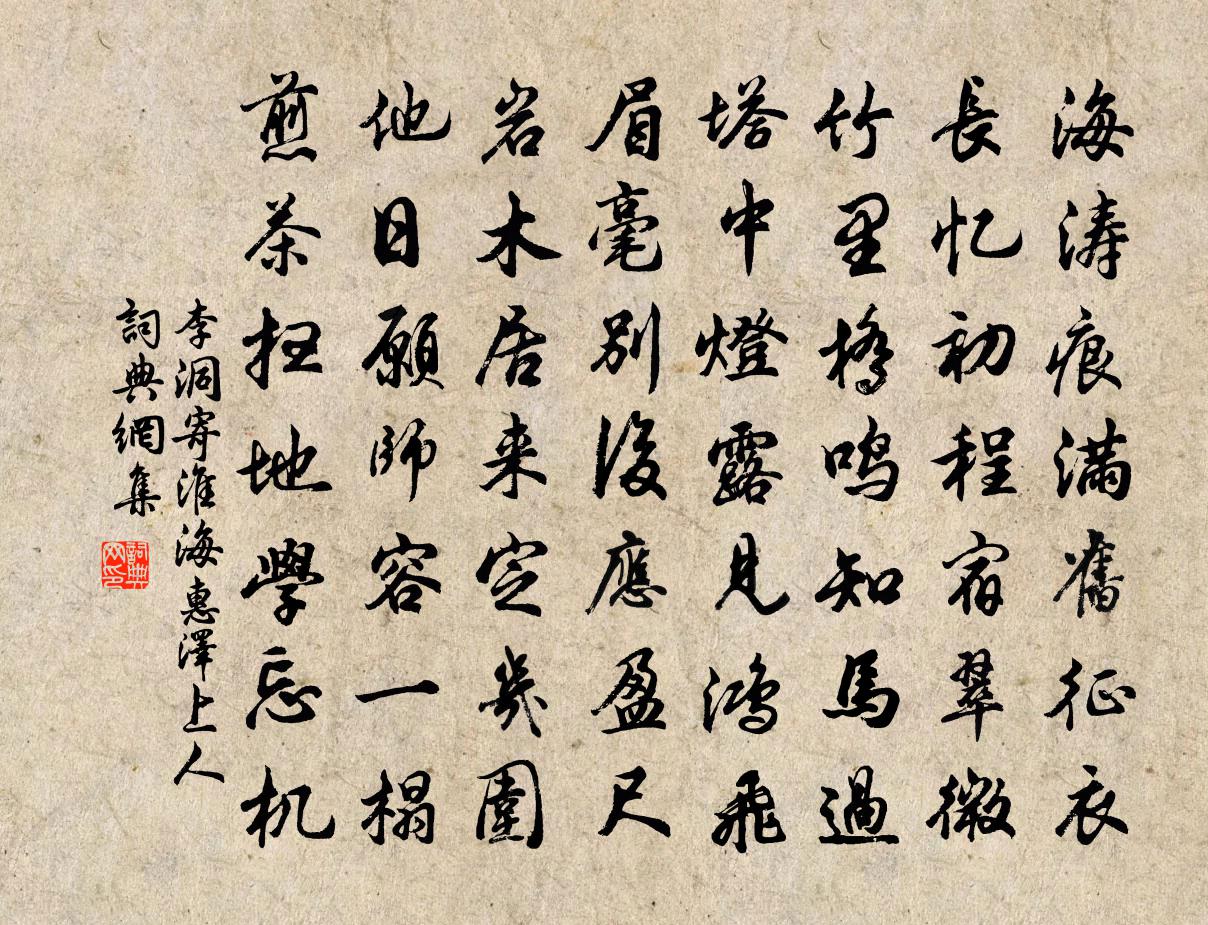 海涛痕满舊征衣
長忆初程宿翠微
竹里橋鸣知馬過
塔中燈露見鸿飛
眉毫别後應盈尺
岩木居来定幾圍
他日願師容一榻
煎茶扫地學忘机
李洞寄淮海惠澤上人
詞典網集
詞典網印